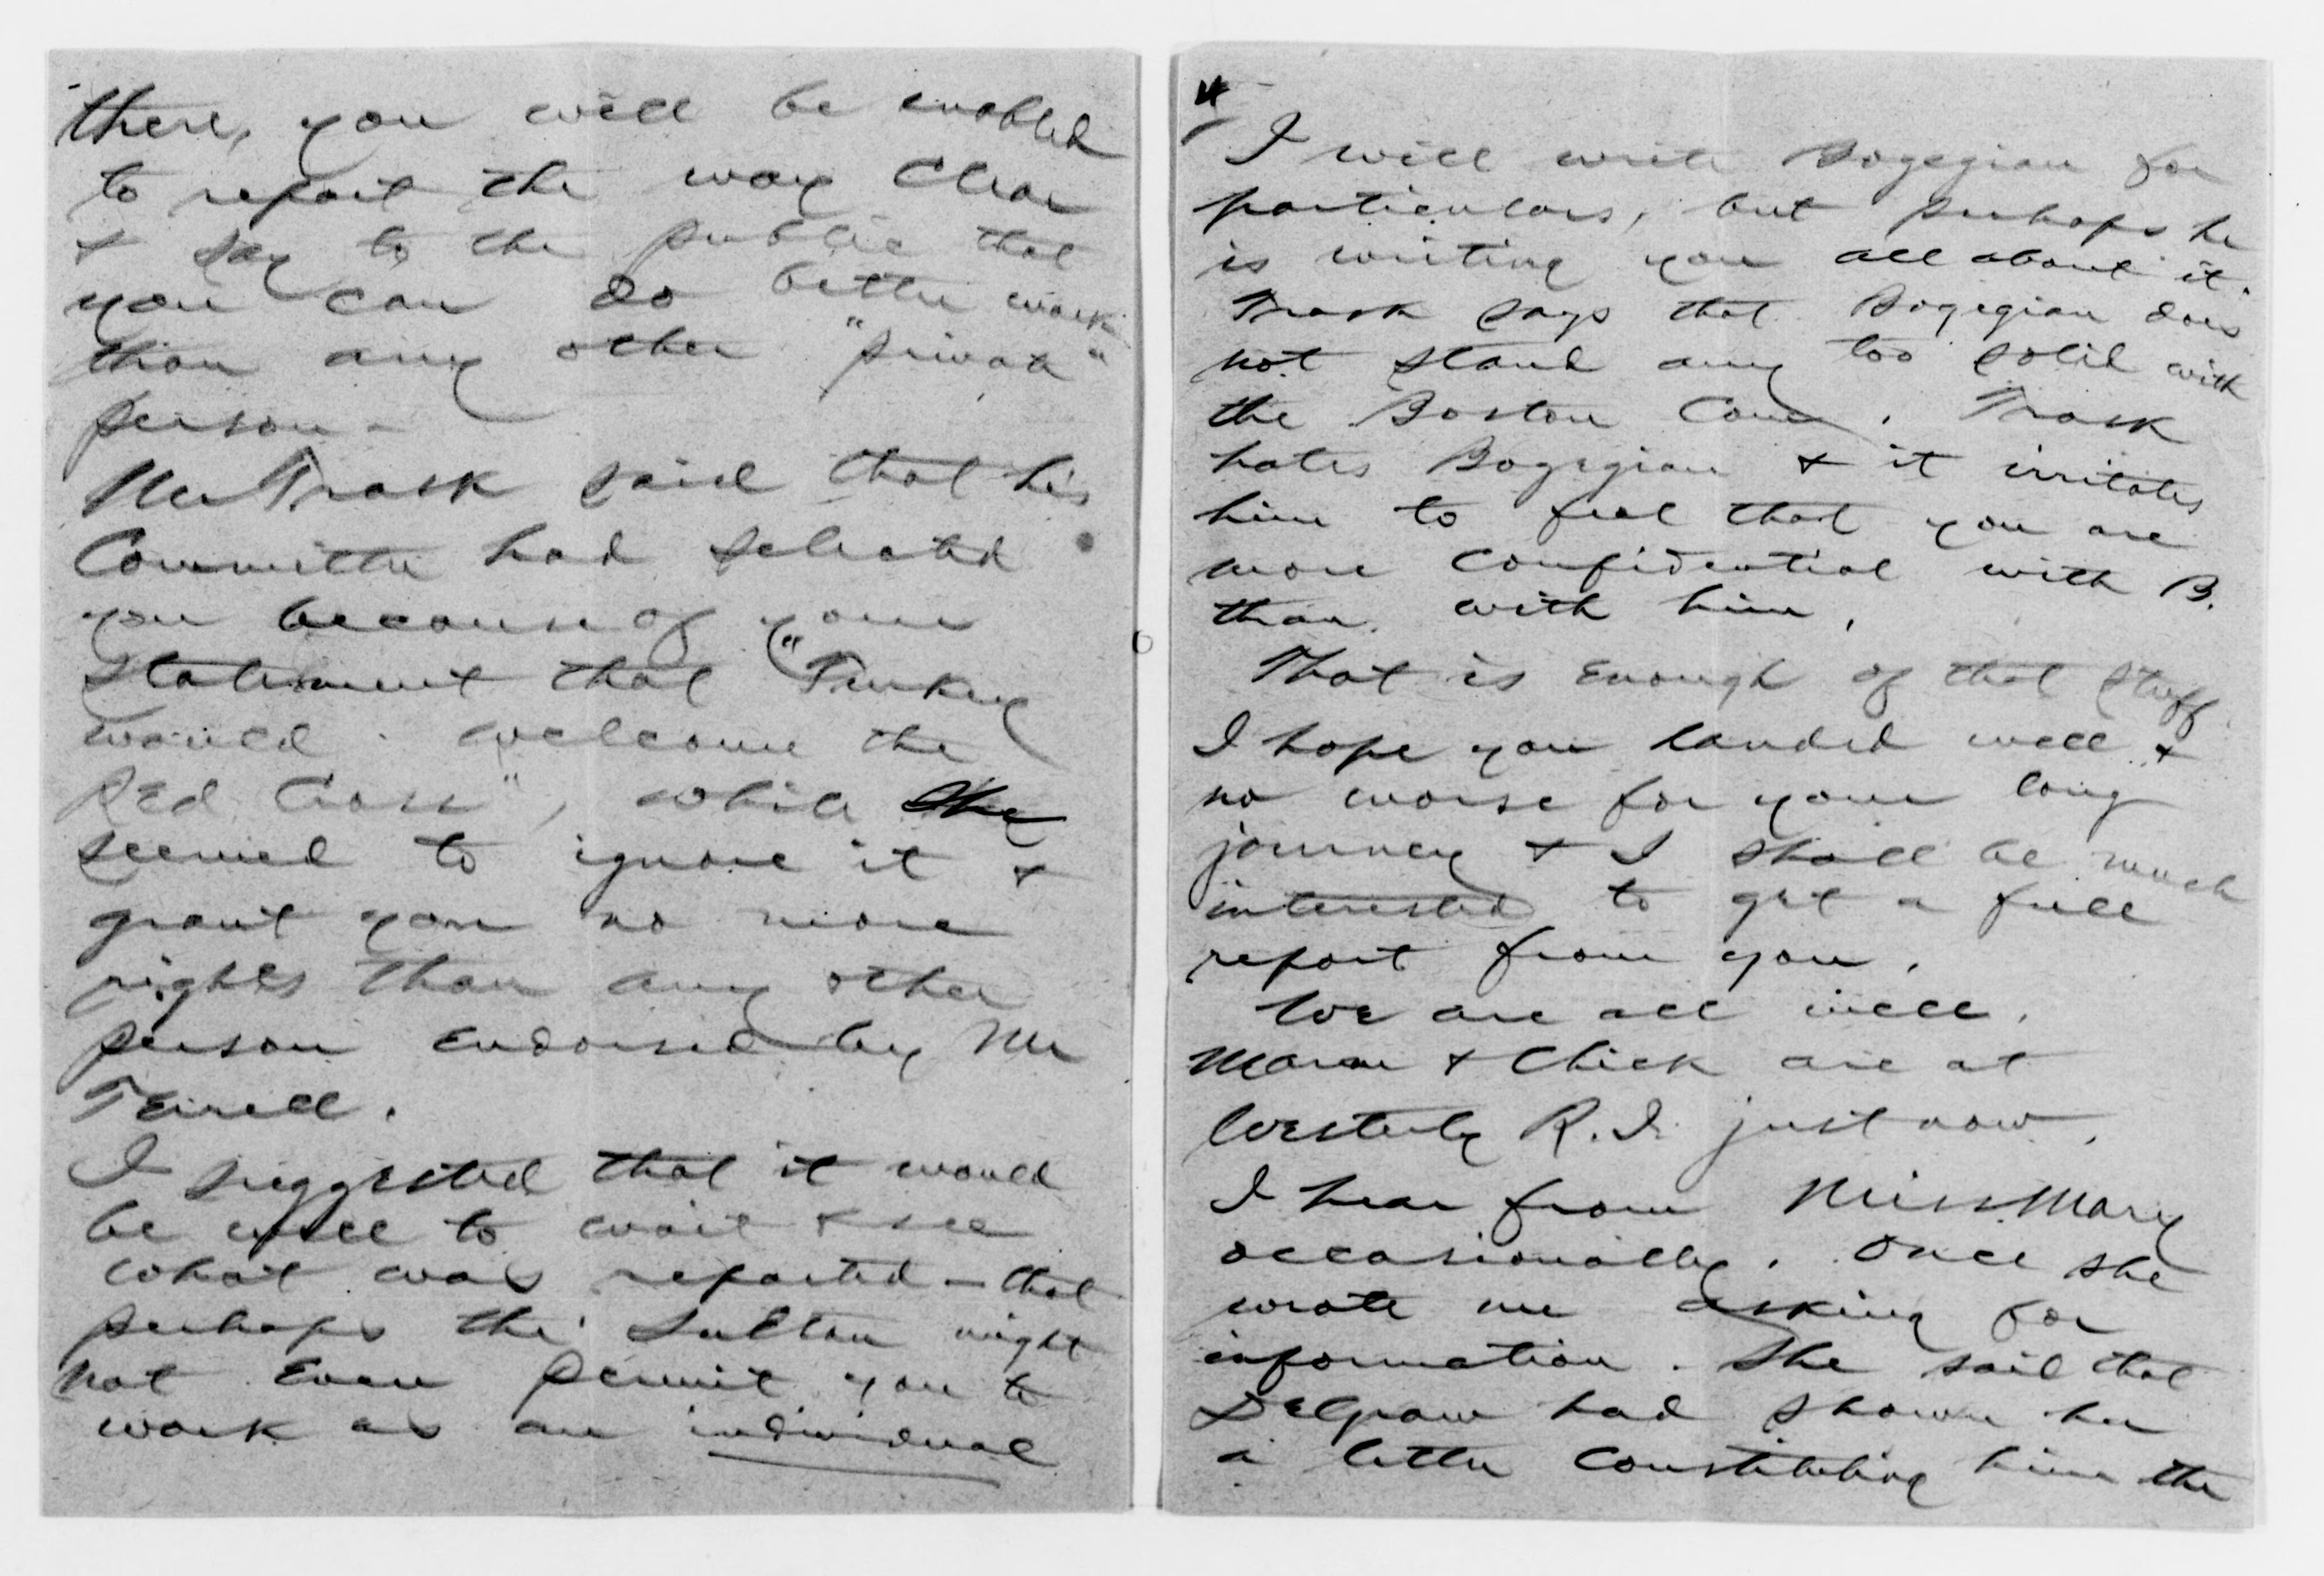 there, you will be enabled
to report the way clear
& say to the public that
you can do better work
than any other "private"
person -
Mr Trask said that his
Committee had selected
you because of your
statement that "Turkey
would welcome the
Red Cross", while she
seemed to ignore it &
grant you no more
rights than any other
person endorsed by Mr
Terrell.
I suggested that it would
be well to wait & see
what was reported - that
perhaps the Sultan might
not even permit you to
work as an individual
4
I will write Bogigian for
particulars, but perhaps he
is writing you all about it.
Trask says that Bogigian does
not stand any too solid with
the Boston Com. Trask
hates Bogigian & it irritates
him to feel that you are
more confidential with B.
than with him.
That is enough of that stuff
I hope you landed well &
no worse for your long
journey & I shall be much
interested to get a full
report from you.
We are all well.
& Chick are at
Westerly R.I. just now.
I hear from Miss Mary
occasionally. Once she
wrote me asking for
information. She said that
DeGraw had shown her
a letter constituting him the